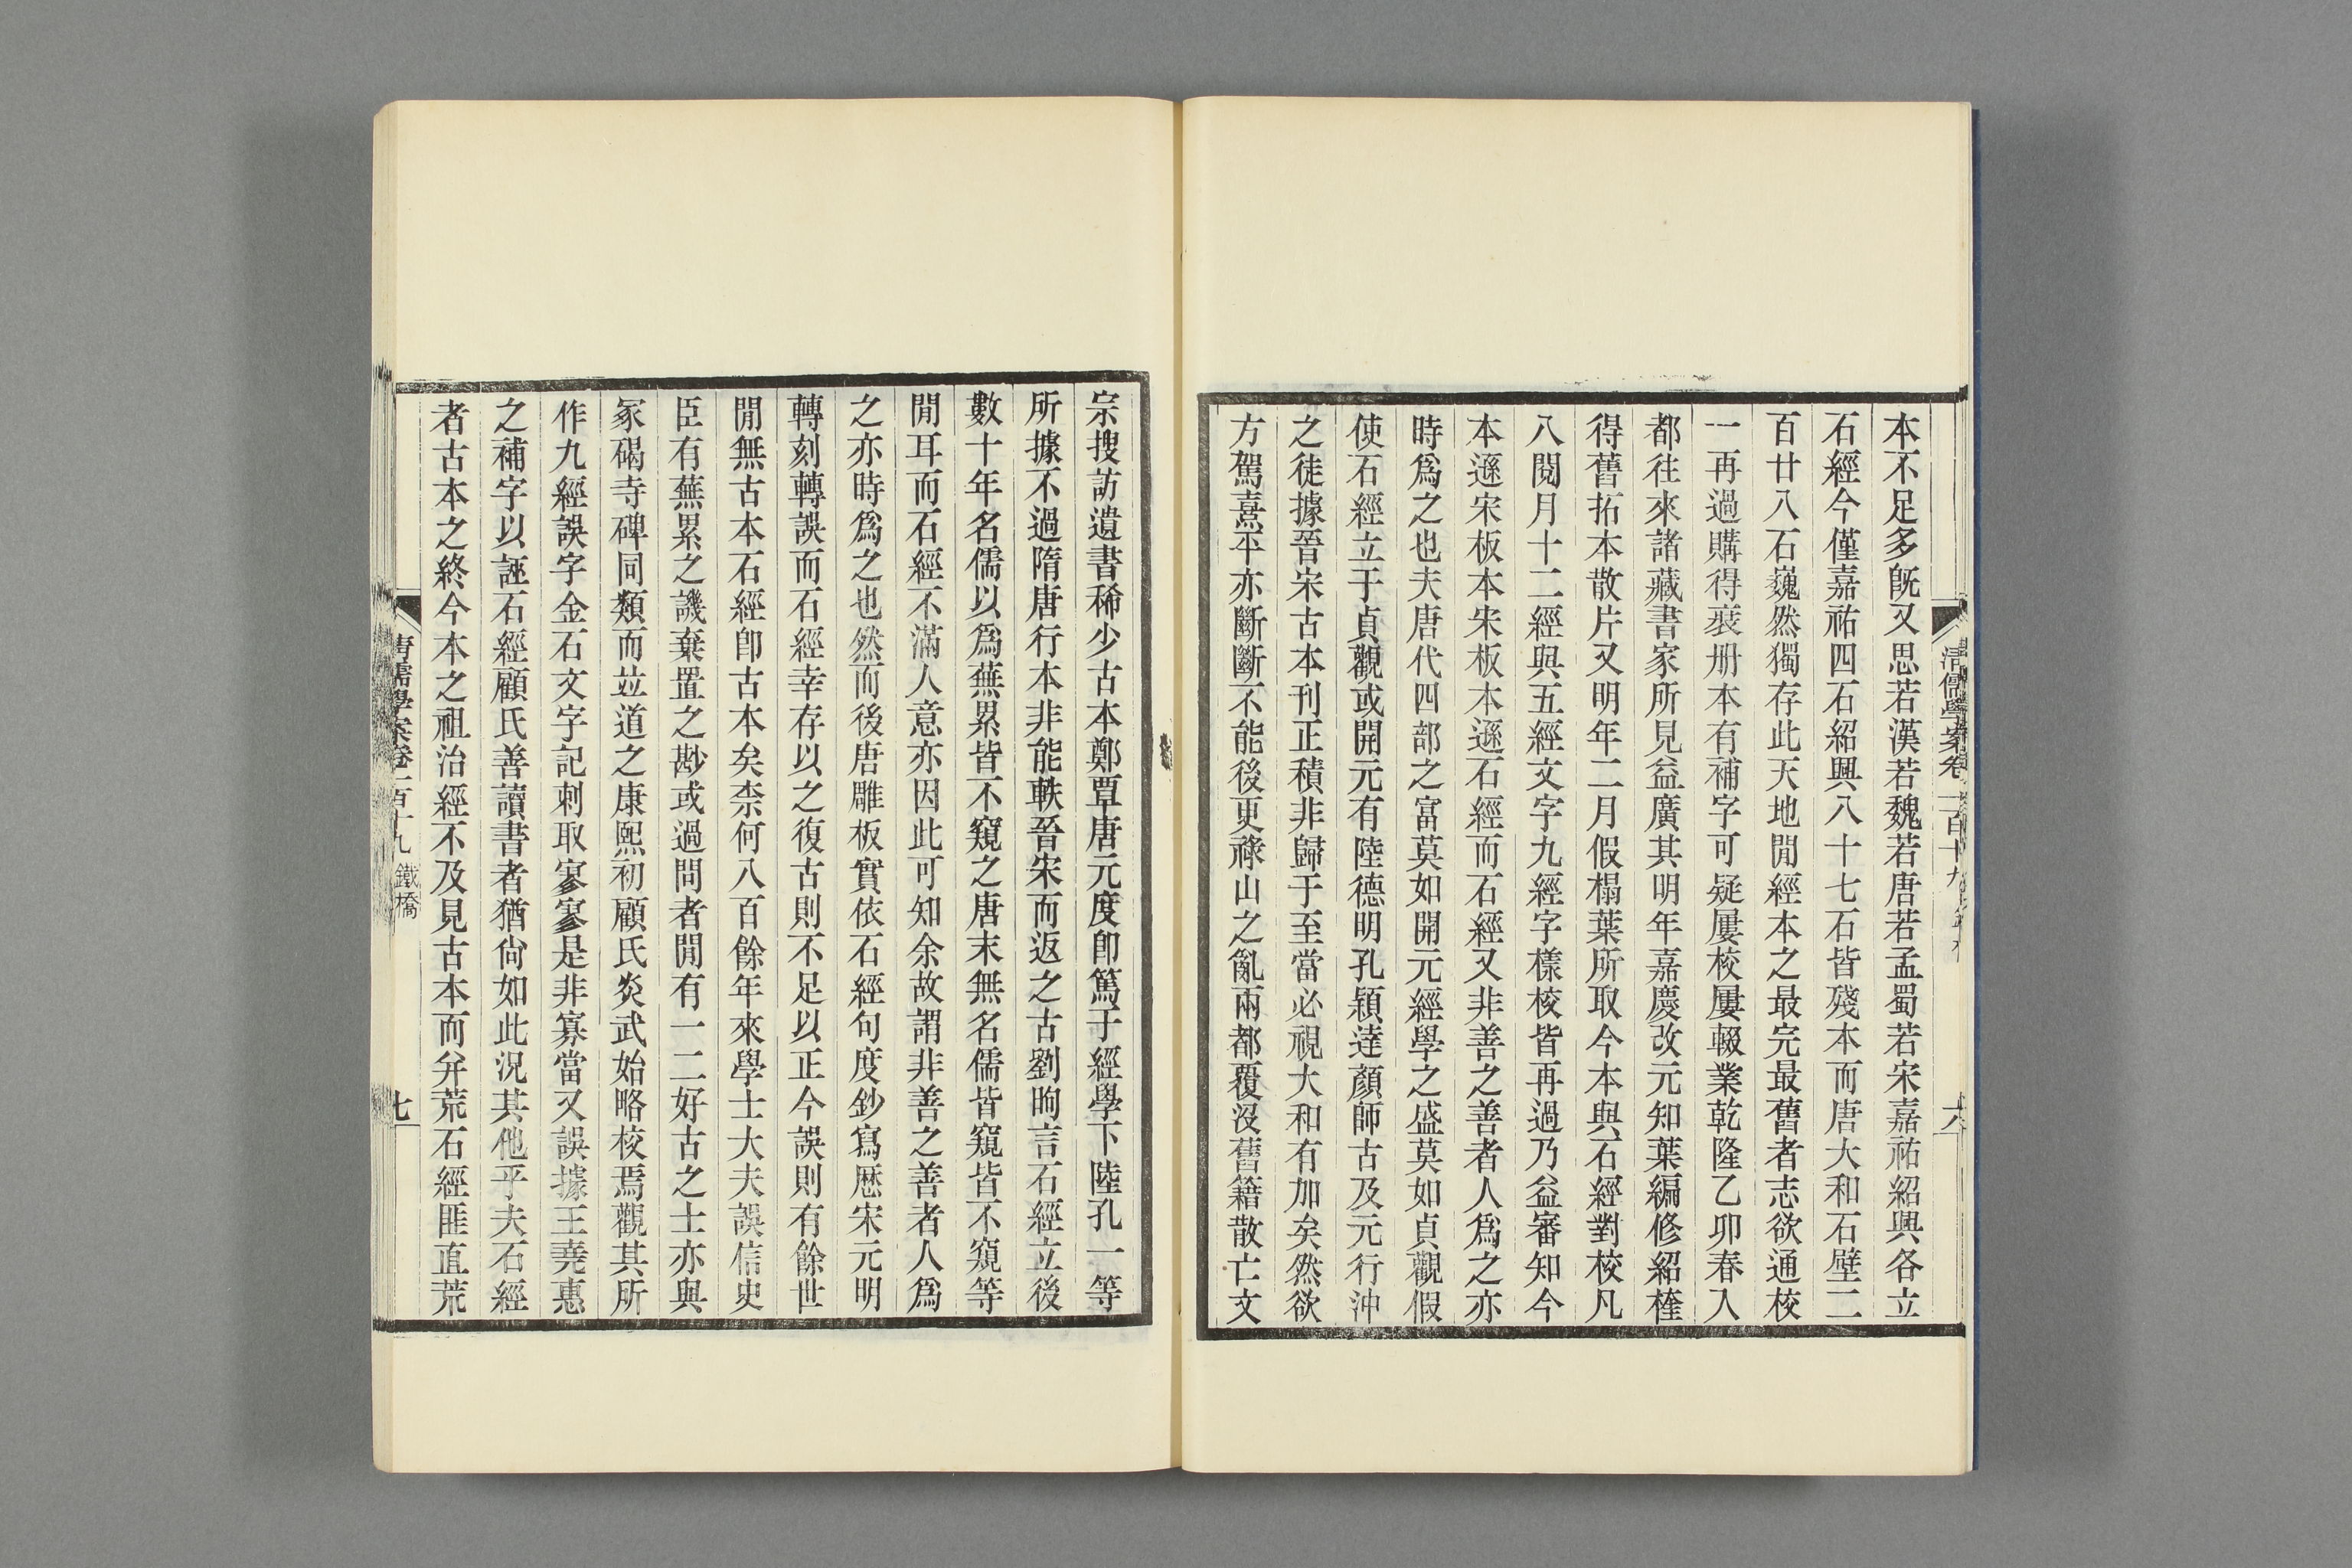 本不足多旣又思若漢若魏若唐若孟蜀若宋嘉祐紹興各立
石經今僅嘉祐四石紹興八十七石皆殘本而唐大和石壁二
百廿八石巍然獨存此天地閒經本之最完最舊者志欲通校
一再過購得裝册本有補字可疑屢校屢輟業乾隆乙卯春入
都往來諸藏書家所見益廣其明年嘉慶改元知葉編修紹楏
得舊拓本散片又明年二月假榻葉所取今本與石經對校凡
八閱月十二經與五經文字九經字樣校皆再過乃益審知今
本遜宋板本宋板本遜石經而石經又非善之善者人爲之亦
時爲之也夫唐代四部之富莫如開元經學之盛莫如貞觀假
使石經立于貞觀或開元有陸德明孔穎達顏師古及元行沖
之徒據晉宋古本刊正積非歸于至當必視大和有加矣然欲
方駕熹平亦斷斷不能後更祿山之亂兩都覆沒舊籍散亡文
清儒學案卷一百十九
六
宗搜訪遺書稀少古本鄭覃唐元度卽篤于經學下陸孔一等
所據不過隋唐行本非能軼晉宋而返之古劉昫言石經立後
數十年名儒以爲蕪累皆不窺之唐末無名儒皆窺皆不窺等
閒耳而石經不滿人意亦因此可知余故謂非善之善者人爲
之亦時爲之也然而後唐雕板實依石經句度鈔寫歷宋元明
轉刻轉誤而石經幸存以之復古則不足以正今誤則有餘世
閒無古本石經卽古本矣柰何八百餘年來學士大夫誤信史
臣有蕪累之譏棄置之尠或過問者閒有一二好古之士亦與
冢碣寺碑同類而竝道之康熙初顧氏炎武始略校焉觀其所
作九經誤字金石文字記刺取寥寥是非寡當又誤據王堯惠
之補字以誣石經顧氏善讀書者猶尙如此況其他乎夫石經
者古本之終今本之祖治經不及見古本而幷荒石經匪直荒
清儒學案卷一百十九 鐵橋
七